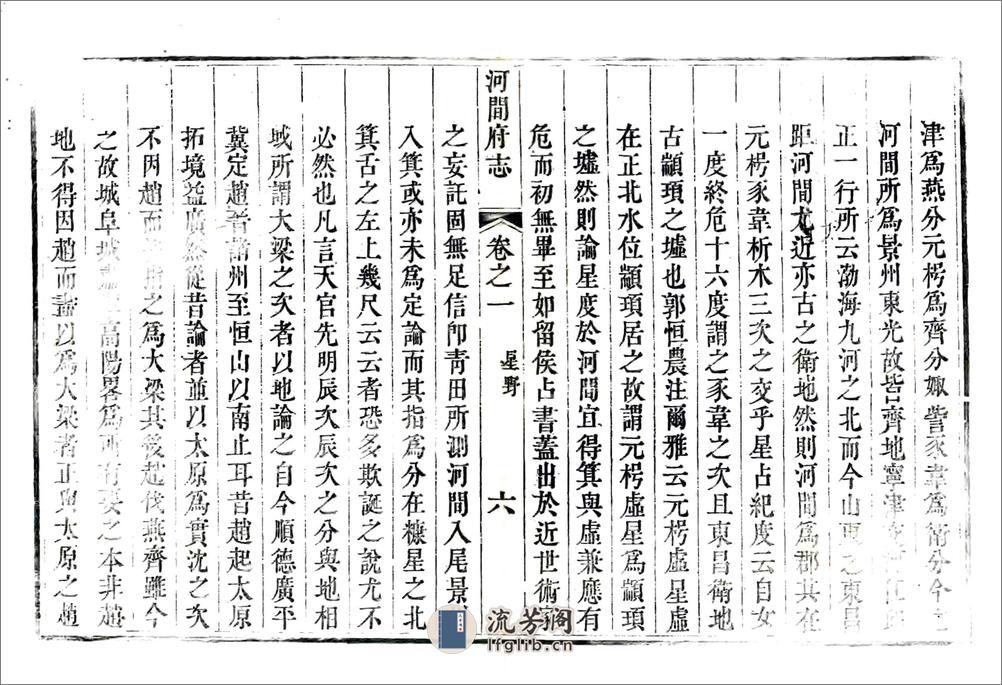 津爲燕分元枵爲齊分娵訾豕韋爲衛分今之
河間所爲景州東光故皆齊地寧津
正一行所云渤海九河之北而今山東之東昌
距河間尤近亦古之衛地然則河間爲郡其在
元枵豕韋析木三次之交乎星占紀度云自女
一度終危十六度謂之豕韋之次且東昌衛地
古顓頊之墟也郭恒農注爾雅云元枵虛星虛
在正北水位顓頊居之故謂元枵虛星爲顓頊
之墟然則論星度於河間宜得箕與虛兼應有
危而初無畢至如留侯占書蓋出於近世術
河間府志
卷之一
星野
六
之妄託固無足信卽靑田所測河間入尾景
入箕或亦未爲定論而其指爲分在糠星之北
箕舌之左上幾尺云云者恐多欺誕之說尤不
必然也凡言天官先明辰次辰次之分與地相
域所謂大梁之次者以地論之自今順德廣平
冀定趙晋諸州至恒山以南止耳昔趙起太原
拓境益廣然從昔論者並以太原爲實沈之次
不因趙而 之爲大梁其後趙伐燕齊雖今
之故城阜城 高陽畧爲所有要之本非趙
地不得因趙而盡以爲大梁者正與太原之趙
流芳閣
lfglib.cn